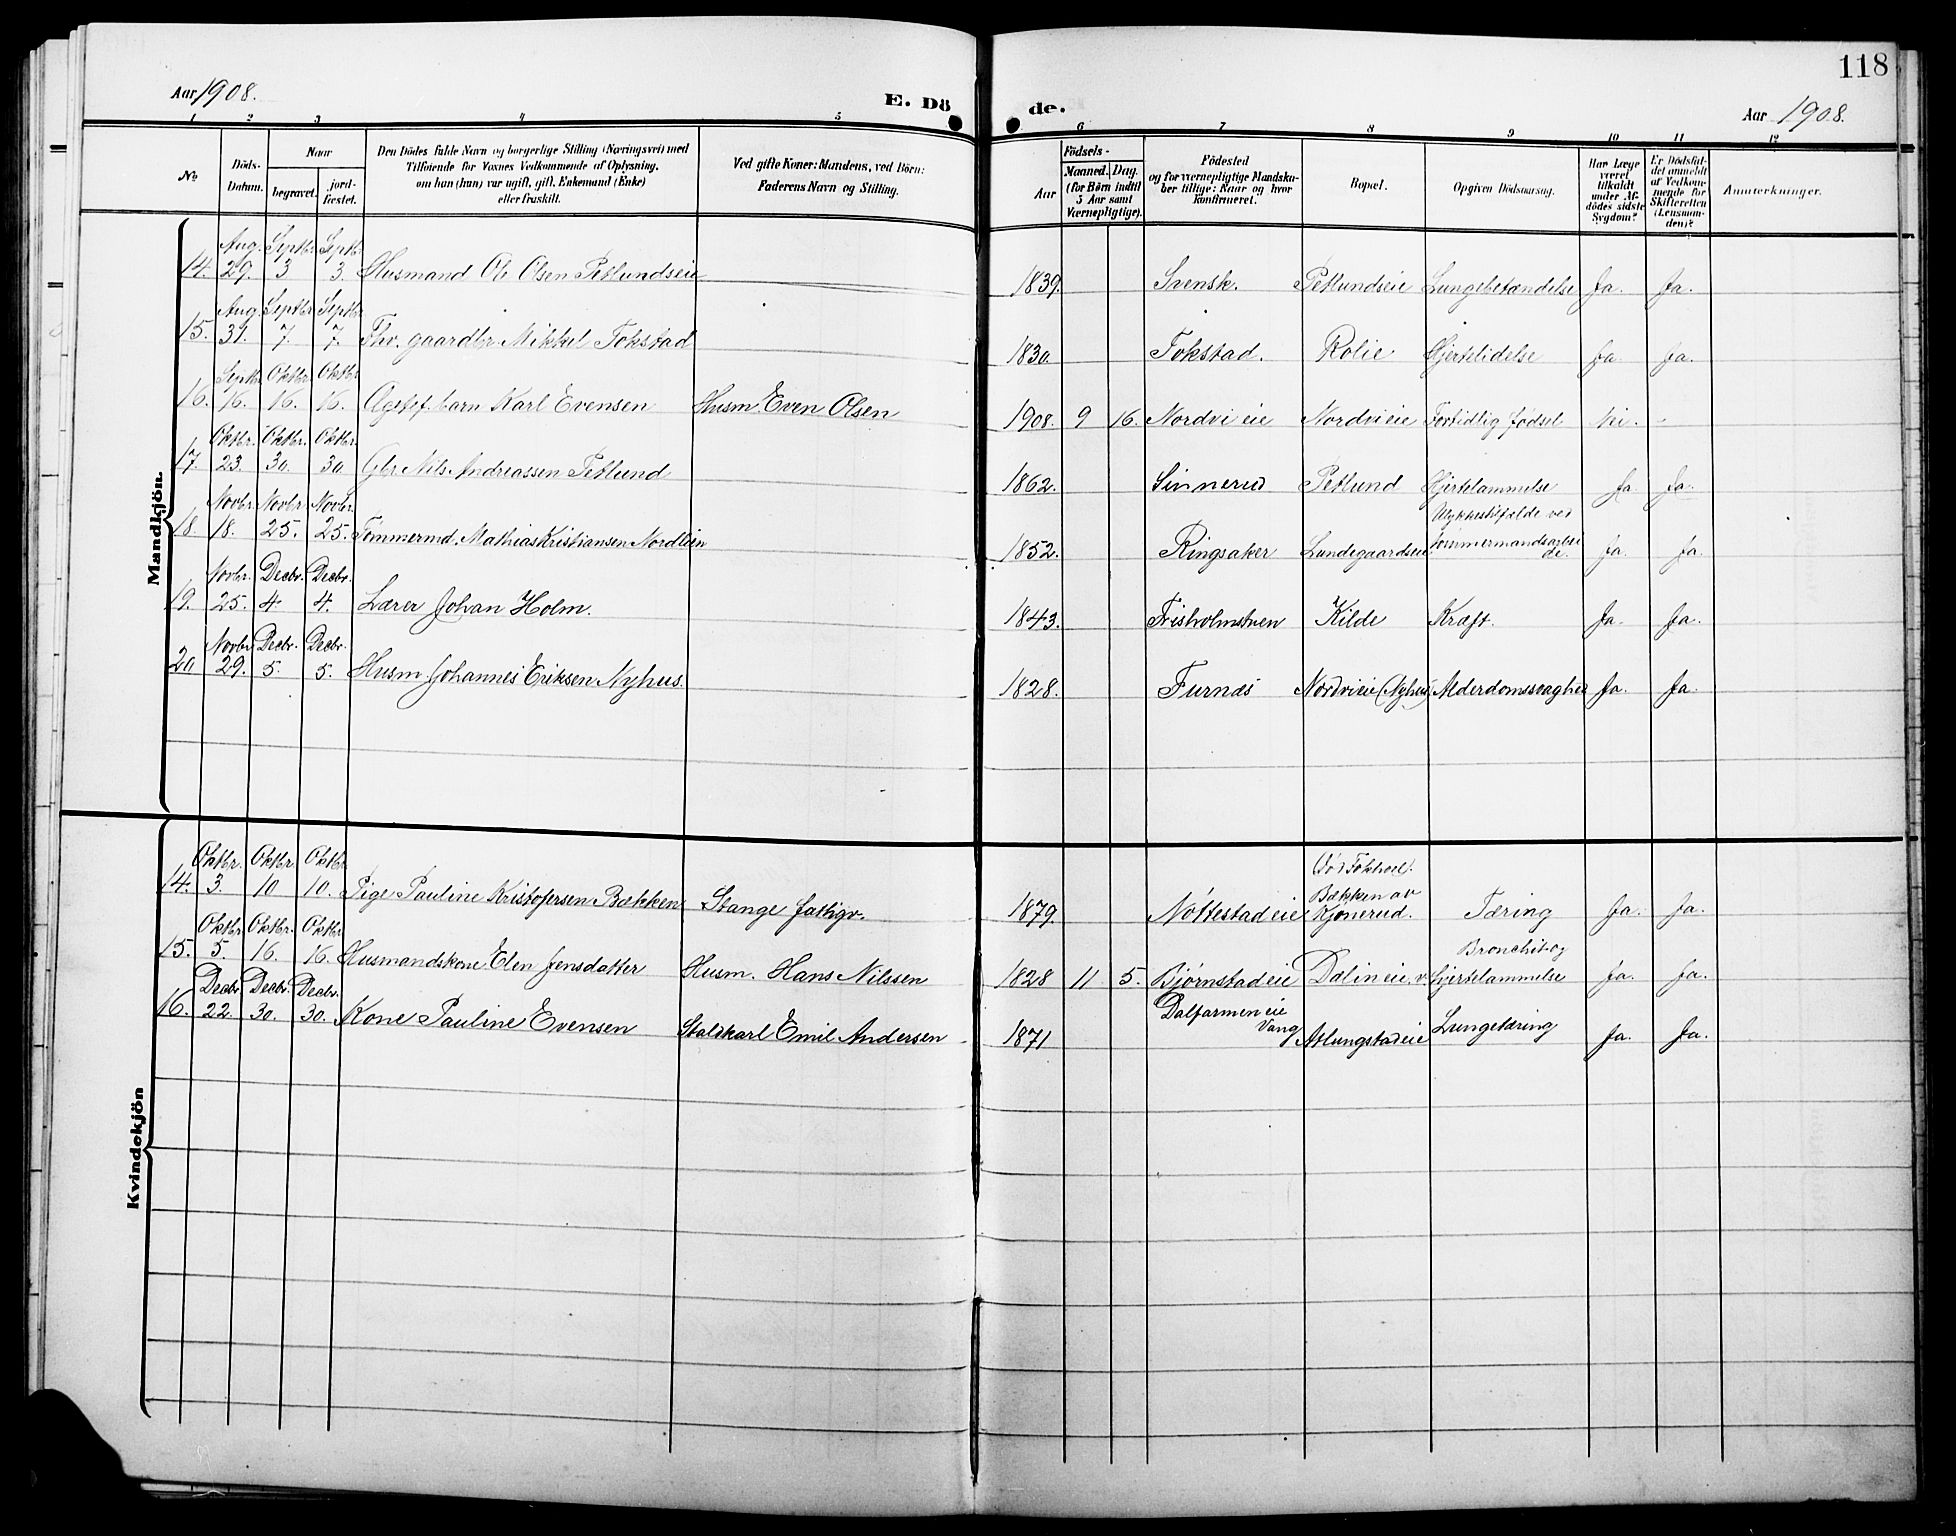 118
Aar 1908.
E. Dö de.
Aar 1908.
1 2 3 4 5 6 7 8 9 10 11 12
No
Döds-Datum.
Naar
begravet.
jord-fæstet.
Den Dödes fulde Navn og borgerlige Stilling (Næringsvei) med
Tilföiende for Voxnes Vedkommende af Oplysning,
om han (hun) var ugift, gift, Enkemand (Enke)
eller fraskilt.
Ved gifte Koner: Mandens, ved Börn:
Faderens Navn og Stilling.
Födsels-
Aar
Maaned. Dag.
(for Börn indtil
5 Aar samt
Værnepligtige).
Födested
og for værnepligtige Mandska-
ber tillige: Naar og hvor
konfirmeret.
Bopæl.
Opgiven Dödsaarsag.
Har Læge
været
tilkaldt
under Af-
dödes sidste
Sygdom?
Er Dödsfal-
det anmeldt
af Vedkom-
mende for
Skifteretten
(Lensman-
den)?
Anmærkninger.
Mandkjön.
14. Aug. 29. Septbr. 3 Septbr. 3. Husmand Ole Olsen Petlundseie 1839. Svensk. Petlundseie Lungebetændelse Ja. Ja.
15. Aug. 31. Septbr. 7. Septbr. 7. Fhv. gaardbr Mikkel Tokstad 1830. Tokstad. Rolie Hjertelidelse Ja Ja.
16. Septbr. 16. Oktbr. 16. Oktbr. 16. Ægtef. barn Karl Evensen Husm. Even Olsen 1908. 9 16. Nordvi eie Nordvi eie Fortidlig fødsel Nei. -
17. Oktbr. 23. Oktbr. 30. Oktbr. 30. Gbr Nils Andreassen Petlund 1862. Sinnerud Petlund Hjertelammelse Ja. Ja.
18. Novbr. 18. Novbr. 25. Novbr. 25. Tømmermd. Mathias Kristiansen 1852. Ringsaker Lundegaardseie Ulykkestilfælde ved tømmermandsarbeide Ja. Ja.
19. Novbr. 25. Decbr. 4 Decbr. 4. Lærer Johan Holm. 1843. Kilde Kræft. Ja. Ja.
20 Novbr. 29. Decbr. 5. Decbr. 5. Husm Johannes Eriksen Nyhus. 1828. Furnæs Nordvieie (Nyhus) Alderdomssvaghed Ja. Ja.
Kvindekjön
14. Oktbr. 3. Oktbr. 10 Oktbr. 10. Pige Pauline Kristofersen Bækken Stange fattigv. 1879. Nøttestad eie Bækken av Kjonerud. Tæring Ja. Ja.
15. Oktbr. 5. Oktbr. 16. Oktbr. 16. Husmandskone Elen Jensdatter Husm. Hans Nilssen 1828 11 5. Bjørnstad eie Dalin eie. v. Bronchit og Hjertelammelse Ja. Ja.
16. Decbr. 22. Decbr. 30. Decbr. 30. Kone Pauline Evensen Staldkarl Emil Andersen 1871 Dalfarmen eie Vang Atlungstad eie Lungetæring Ja. Ja.